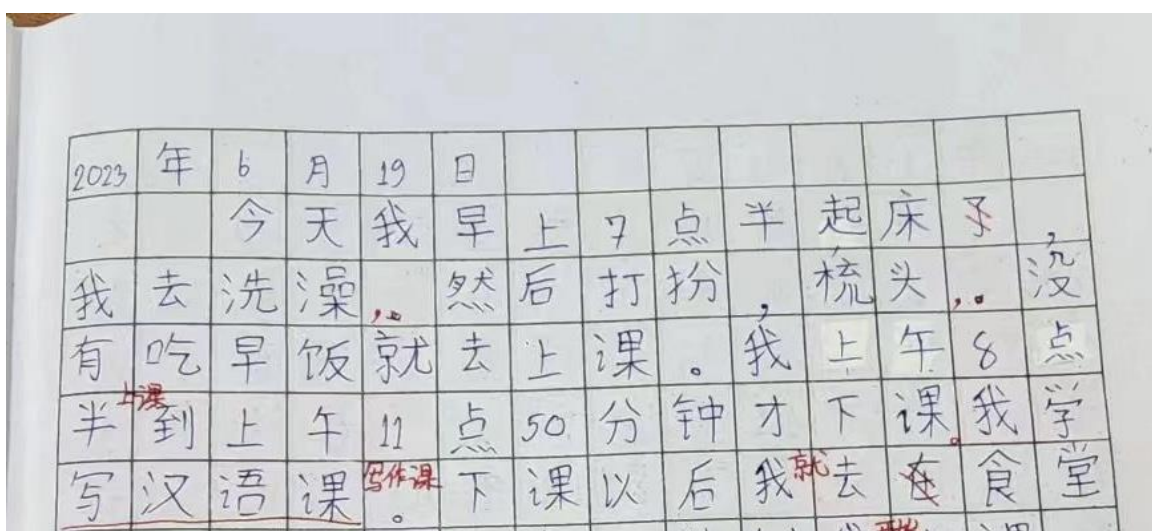 2023年6月19日
今天我早上7点半起床了,
我去洗澡,。然后打扮,梳头,。没
有吃早饭就去上课。我上午8点
上课
半到上午11点50分钟才下课。我学
写汉语课写作课。下课以后我就去在食堂